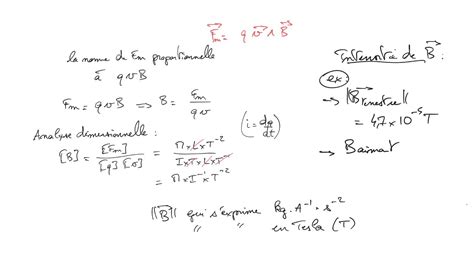 F⃗m = q v⃗ ∧ B⃗
la norme de Fm proportionnelle
à q v B
Fm = q v B ⟹ B = Fm / (q v)
Analyse dimensionnelle :
(i = dq/dt)
[B] = [Fm] / ([q] [v]) = (M × L × T⁻²) / (I × T × L × T⁻¹)
= M × I⁻¹ × T⁻²
‖B⃗‖ qui s'exprime kg . A⁻¹ . s⁻²
" " en Tesla (T)
Intensité de B⃗ :
ex :
→ ‖B⃗terrestre‖
= 4,7 × 10⁻⁵ T
→